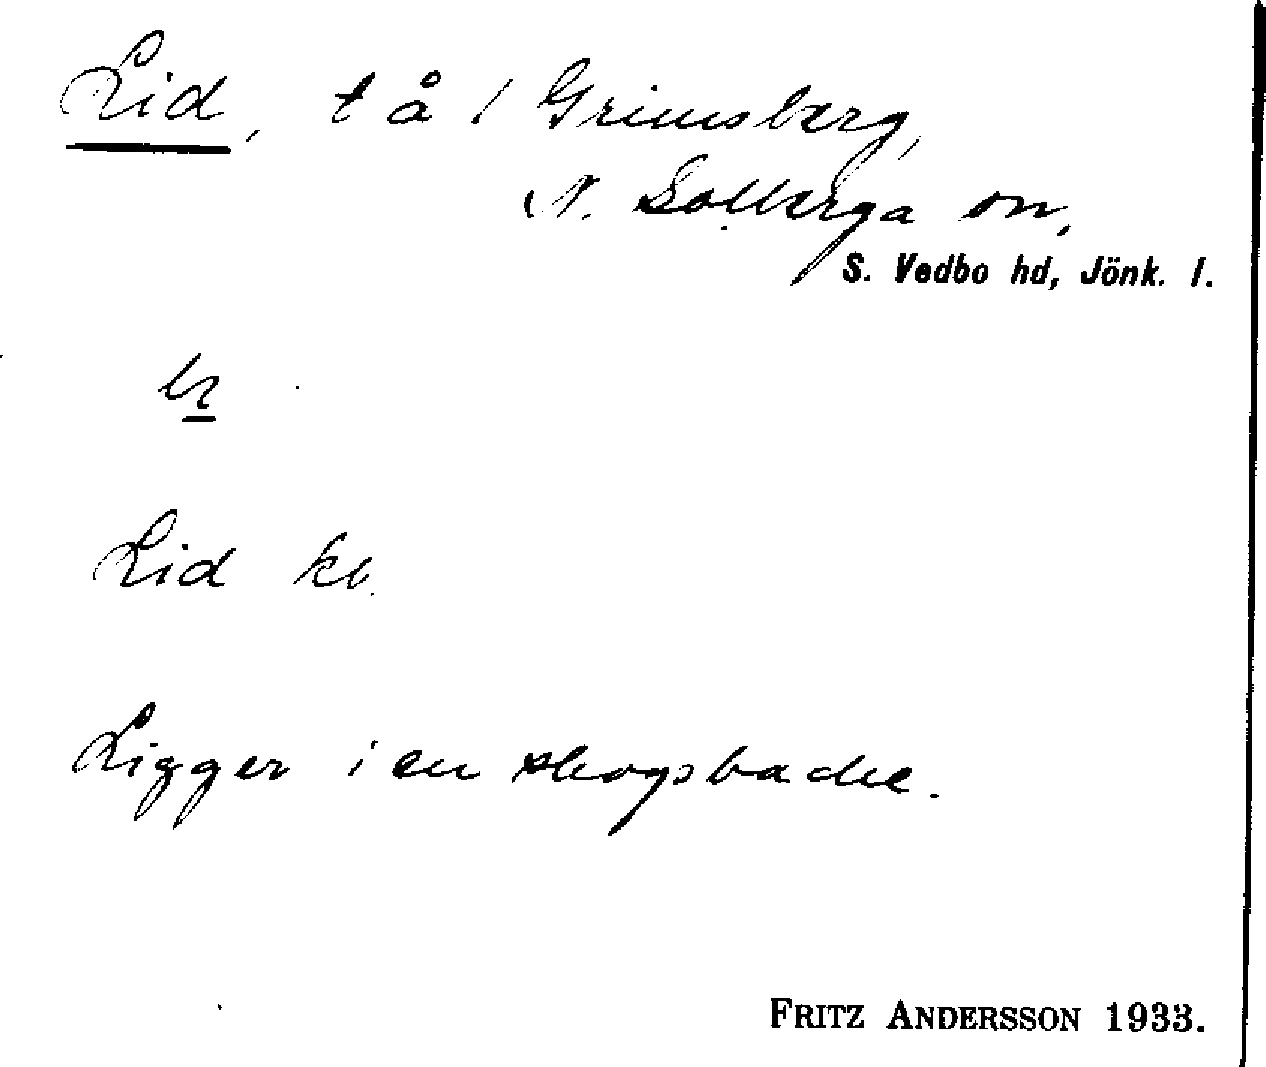 Lid, t å / Grimsberg,
N. Solberga sn,
S. Vedbo hd, Jönk. l.
Lid kb.
Ligger i en skogsbacke.
FRITZ ANDERSSON 1933.